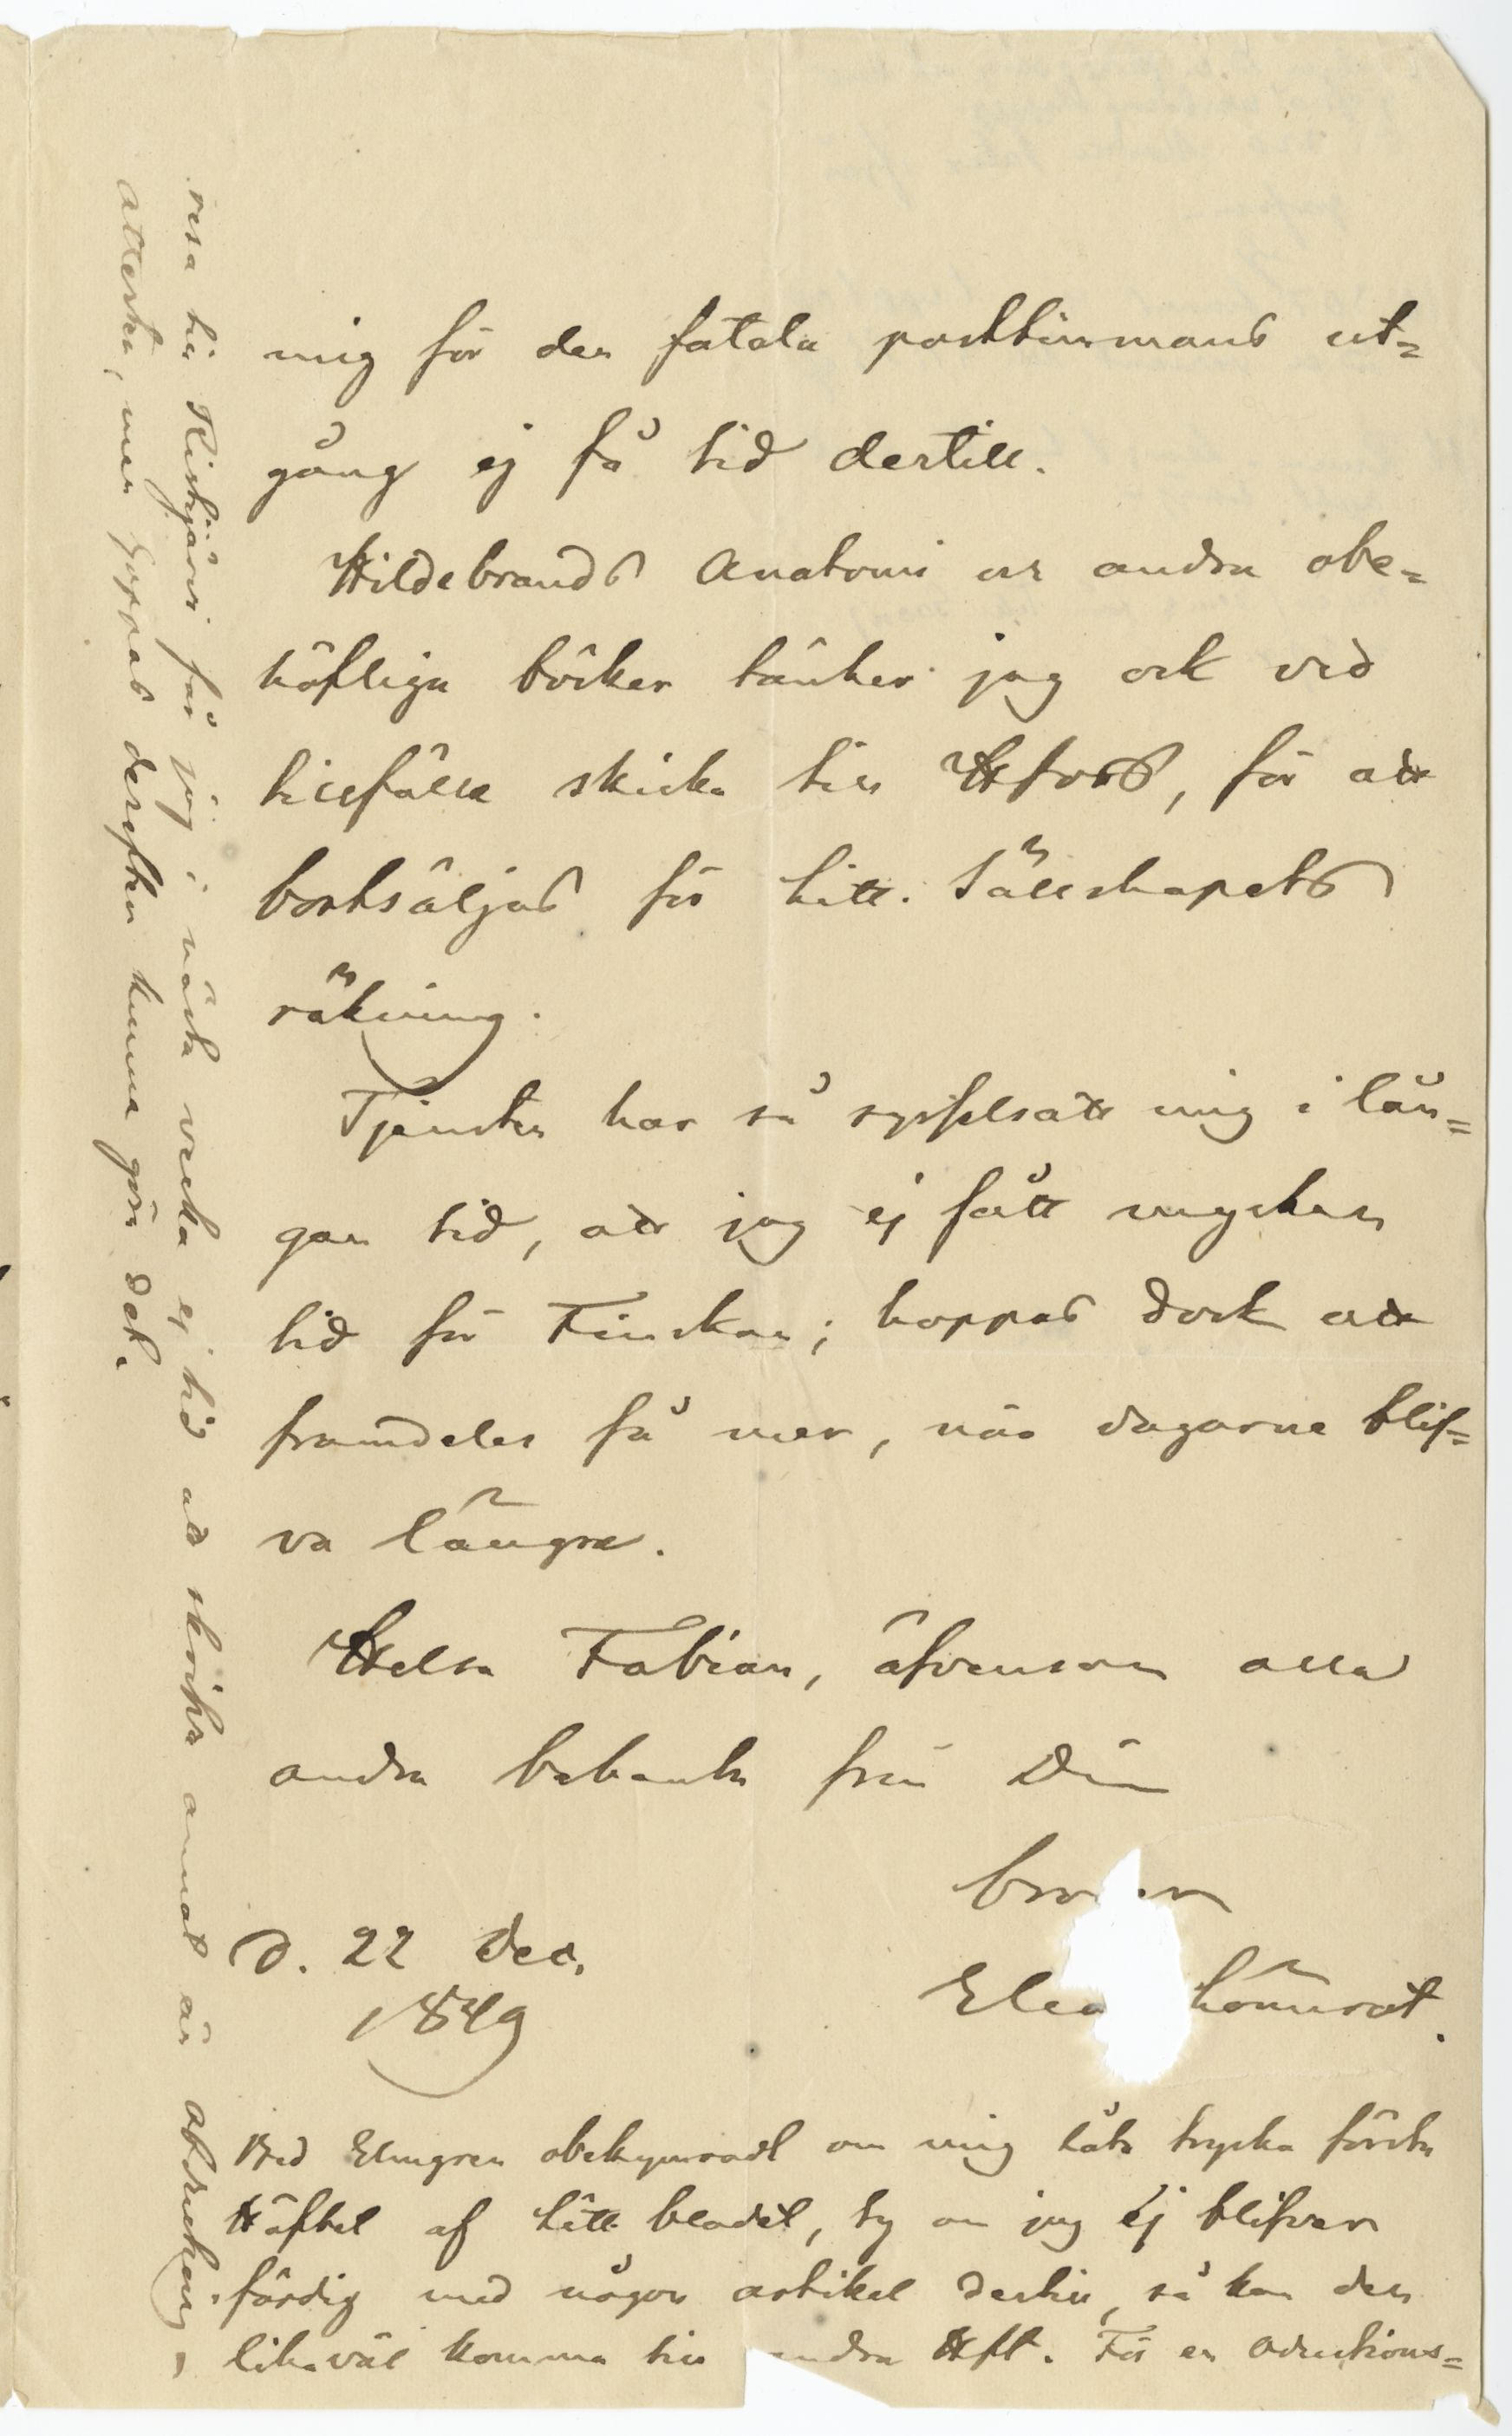 mig för den fatala posttimmans ut=
gång ej få tid dertill.
Hildebrands Anatomi och andra obe=
höfliga böcker tänker jag ock vid
tillfälle skicka till Hfors, för att
bortsäljas för Litt. Sällskapets
räkning.
Tjensten har så sysselsatt mig i lån=
gan tid, att jag ej fått mycken
tid för Finskan; hoppas dock att
framdeles få mer, när dagarne blif=
va längre.
Helsa Fabian, äfvensom alla
andra bekanta från Din
bro er
Elia Lönnrot.
d. 22 Dec.
1849
Bed Elmgren obekymradt om mig låta trycka första
Häftet af Litt. bladet, ty om jag ej blifver
färdig med någon artikel dertill, så kan den
likaväl komma till andra Hft. För en Obductions=
resa till Ristijärvi får jag i nästa vecka ej tid att skrifva annat än Obduktions
attester, men hoppas derefter kunna göra det.